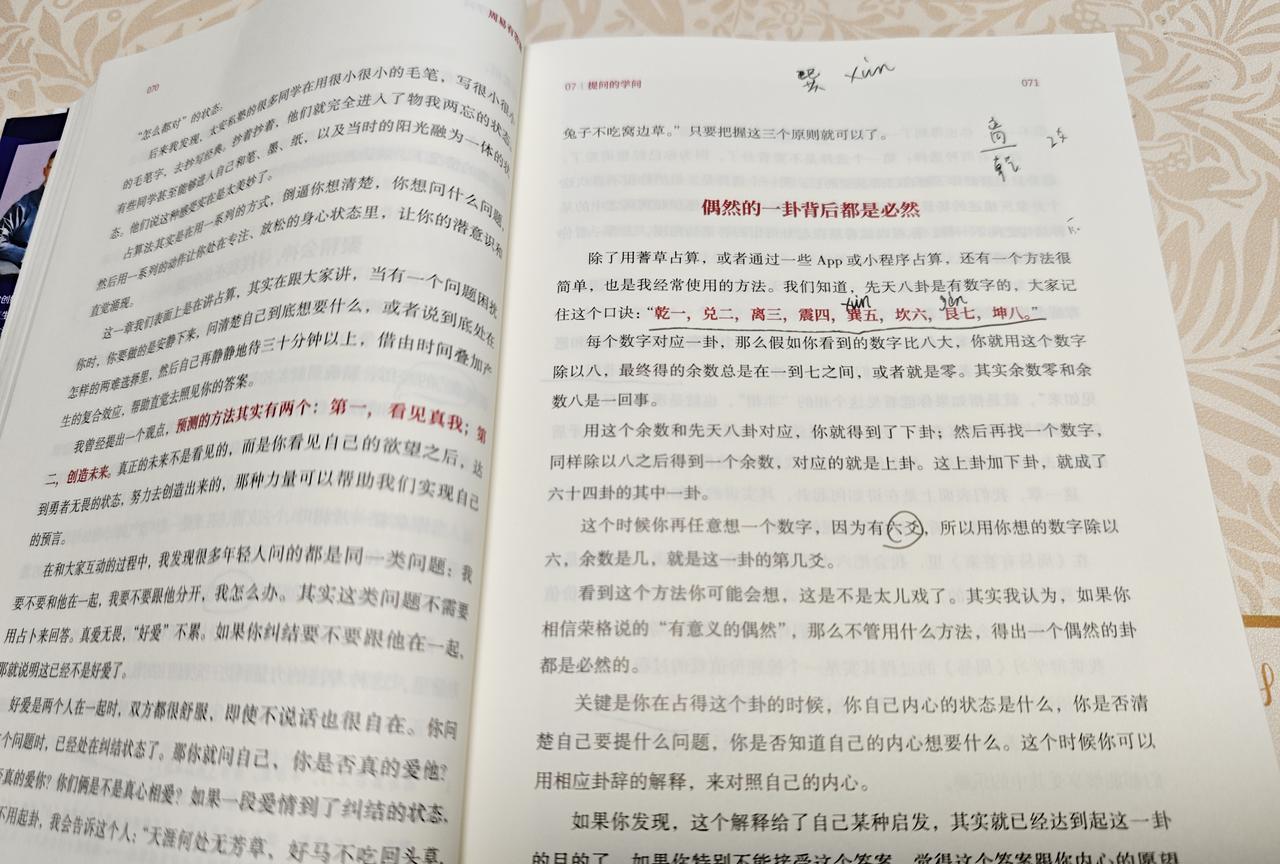 周易有答
070
"怎么都对"的状态。
后来我发现，太安私塾的很多同学在用很小很小的毛笔，写很小很小
的毛笔字，去抄写经典。抄着抄着，他们就完全进入了物我两忘的状态。
有些同学甚至能够进入自己和笔、墨、纸，以及当时的阳光融为一体的状
态。他们说这种感受实在是太美妙了。
占算法其实是在用一系列的方式，倒逼你想清楚，你想问什么问题，
然后用一系列的动作让你处在专注、放松的身心状态里，让你的潜意识和
直觉涌现。
这一章我们表面上是在讲占算，其实在跟大家讲，当有一个问题困扰
你时，你要做的是安静下来，问清楚自己到底想要什么，或者说到底处在
怎样的两难选择里，然后自己再静静地待三十分钟以上，借由时间叠加产
生的复合效应，帮助直觉去照见你的答案。
我曾经提出一个观点，预测的方法其实有两个：第一，看见真我；第
二，创造未来。真正的未来不是看见的，而是你看见自己的欲望之后，达
到勇者无畏的状态，努力去创造出来的，那种力量可以帮助我们实现自己
的预言。
在和大家互动的过程中，我发现很多年轻人问的都是同一类问题：我
要不要和他在一起，我要不要跟他分开，我怎么办。其实这类问题不需要
用占卜来回答。真爱无畏，"好爱"不累。如果你纠结要不要跟他在一起，
那就说明这已经不是好爱了。
好爱是两个人在一起时，双方都很舒服，即使不说话也很自在。你问
个问题时，已经处在纠结状态了。那你就问自己，你是否真的爱他？
真的爱你？你们俩是不是真心相爱？如果一段爱情到了纠结的状态，
不用起卦，我会告诉这个人："天涯何处无芳草，好马不吃回头草，
07 | 提问的学问
巽 xùn
071
兔子不吃窝边草。"只要把握这三个原则就可以了。
离
乾
偶然的一卦背后都是必然
除了用蓍草占算，或者通过一些 App 或小程序占算，还有一个方法很
简单，也是我经常使用的方法。我们知道，先天八卦是有数字的，大家记
xùn gèn
住这个口诀："乾一，兑二，离三，震四，巽五，坎六，艮七，坤八。"
每个数字对应一卦，那么假如你看到的数字比八大，你就用这个数字
除以八，最终得的余数总是在一到七之间，或者就是零。其实余数零和余
数八是一回事。
用这个余数和先天八卦对应，你就得到了下卦；然后再找一个数字，
同样除以八之后得到一个余数，对应的就是上卦。这上卦加下卦，就成了
六十四卦的其中一卦。
这个时候你再任意想一个数字，因为有六爻，所以用你想的数字除以
六，余数是几，就是这一卦的第几爻。
看到这个方法你可能会想，这是不是太儿戏了。其实我认为，如果你
相信荣格说的"有意义的偶然"，那么不管用什么方法，得出一个偶然的卦
都是必然的。
关键是你在占得这个卦的时候，你自己内心的状态是什么，你是否清
楚自己要提什么问题，你是否知道自己的内心想要什么。这个时候你可以
用相应卦辞的解释，来对照自己的内心。
如果你发现，这个解释给了自己某种启发，其实就已经达到起这一卦
的目的了。如果你特别不能接受这个答案，觉得这个答案跟你内心的愿望